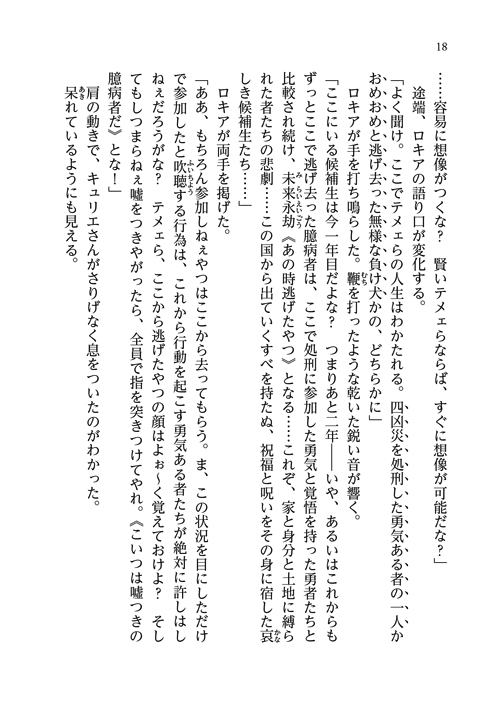 18
……容易に想像がつくな？　賢いテメェらならば、すぐに想像が可能だな？」
　途端、ロキアの語り口が変化する。
「よく聞け。ここでテメェらの人生はわかたれる。四凶災を処刑した勇気ある者の一人か
おめおめと逃げ去った無様な負け犬かの、どちらかに」
　ロキアが手を打ち鳴らした。鞭を打ったような乾いた鋭い音が響く。
「ここにいる候補生は今一年目だよな？　つまりあと二年――いや、あるいはこれからも
ずっとここで逃げ去った臆病者は、ここで処刑に参加した勇気と覚悟を持った勇者たちと
比較され続け、未来永劫《あの時逃げたやつ》となる……これぞ、家と身分と土地に縛ら
れた者たちの悲劇……この国から出ていくすべを持たぬ、祝福と呪いをその身に宿した哀
しき候補生たち……」
　ロキアが両手を掲げた。
「ああ、もちろん参加しねぇやつはここから去ってもらう。ま、この状況を目にしただけ
で参加したと吹聴する行為は、これから行動を起こす勇気ある者たちが絶対に許しはし
ねぇだろうがな？　テメェら、ここから逃げたやつの顔はよぉ～く覚えておけよ？　そし
てもしつまらねぇ嘘をつきやがったら、全員で指を突きつけてやれ。《こいつは嘘つきの
臆病者だ》とな！」
　肩の動きで、キュリエさんがさりげなく息をついたのがわかった。
呆れているようにも見える。